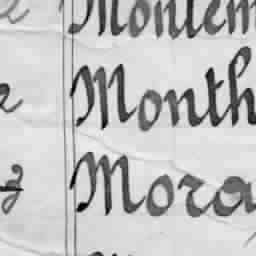 Montem
Month
Mora